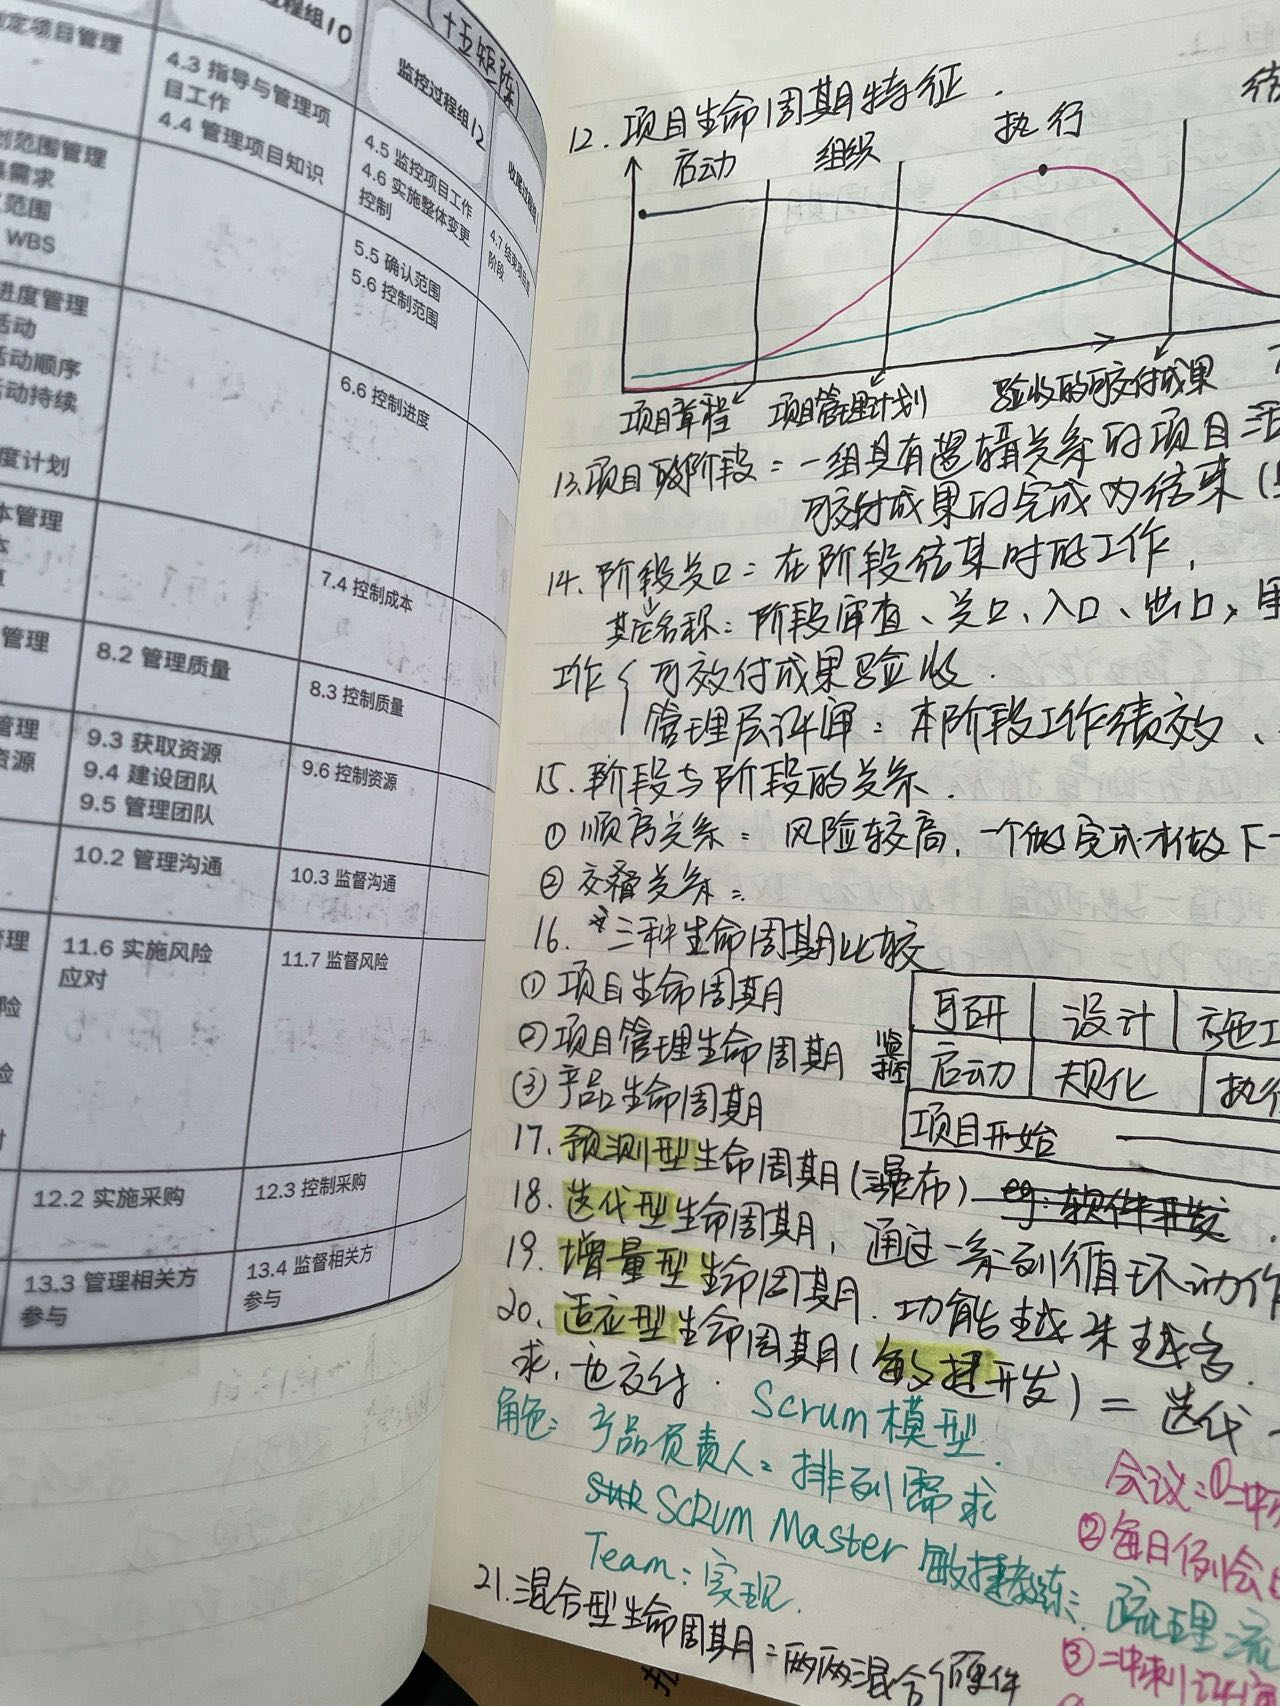 十五矩阵
定项目管理
过程组10
监控过程组12
收尾过程组1
4.3 指导与管理项
目工作
4.4 管理项目知识
4.5 监控项目工作
4.6 实施整体变更
控制
4.7 结束项目或
阶段
划范围管理
集需求
范围
WBS
5.5 确认范围
5.6 控制范围
进度管理
活动
活动顺序
活动持续
度计划
6.6 控制进度
本管理
本
7.4 控制成本
管理
8.2 管理质量
8.3 控制质量
管理
资源
9.3 获取资源
9.4 建设团队
9.5 管理团队
9.6 控制资源
10.2 管理沟通
10.3 监督沟通
管理
险
11.6 实施风险
应对
11.7 监督风险
12.2 实施采购
12.3 控制采购
13.3 管理相关方
参与
13.4 监督相关方
参与
12. 项目生命周期特征.
启动 组织 执行
项目章程 项目管理计划 验收的可交付成果
13. 项目阶段=一组具有逻辑关系的项目活
可交付成果的完成为结束(
14. 阶段关口=在阶段结束时的工作,
其它名称:阶段审查、关口、入口、出口,
工作{可交付成果验收.
管理层评审:本阶段工作绩效、
15. 阶段与阶段的关系.
① 顺序关系=风险较高,一个做完成才做下一
② 交叠关系=
16. *三种生命周期比较
① 项目生命周期
② 项目管理生命周期
③ 产品生命周期
可研 设计 施工
监控 启动 规化 执行
项目开始
17. 预测型生命周期(瀑布) eg:软件开发.
18. 迭代型生命周期,通过一系列循环动作
19. 增量型生命周期.功能越来越多.
20. 适应型生命周期(敏捷开发)=迭代
求,也交付.
Scrum模型.
角色:产品负责人:排列需求
SCRUM Master 敏捷教练:疏理流
Team:实现.
会议:①冲
②每日例会
③冲刺评审
21. 混合型生命周期=两两混合{硬件